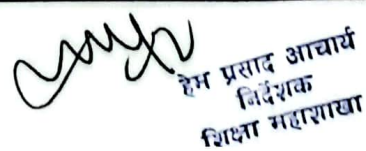 हेम प्रसाद आचार्य
निर्देशक
शिक्षा महाशाखा